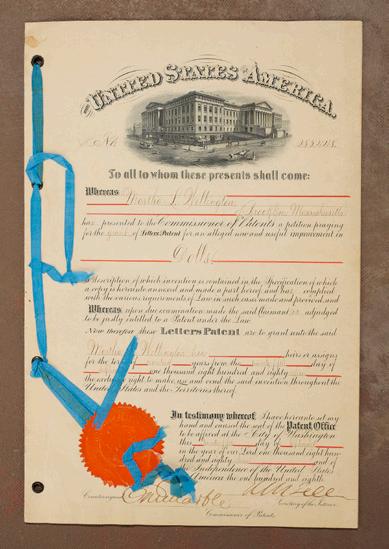 THE UNITED STATES OF AMERICA,
To all to whom these presents shall come:
Whereas Martha L. Wellington
of Brookline Massachusetts
has presented to the Commissioner of Patents a petition praying
for the grant of Letters Patent for an alleged new and useful improvement in
Dolls
a Description of which invention is contained in the Specification of which
a copy is hereunto annexed and made a part hereof and has complied
with the various requirements of Law in such cases made and provided, and
Whereas upon due examination made the said Claimant is adjudged
to be justly entitled to a Patent under the Law
Now therefore these Letters Patent are to grant unto the said
Martha L. Wellington her heirs or assigns
for the term of years from the day of
one thousand eight hundred and eighty
the exclusive right to make, use and vend the said invention throughout the
United States and the Territories thereof.
In testimony whereof I have hereunto set my
hand and caused the seal of the Patent Office
to be affixed at the City of Washington
this day of
in the year of our Lord one thousand eight hun-
dred and and of
the Independence of the United States
of America the one hundred and eighth
Countersigned
Secretary of the Interior.
Commissioner of Patents